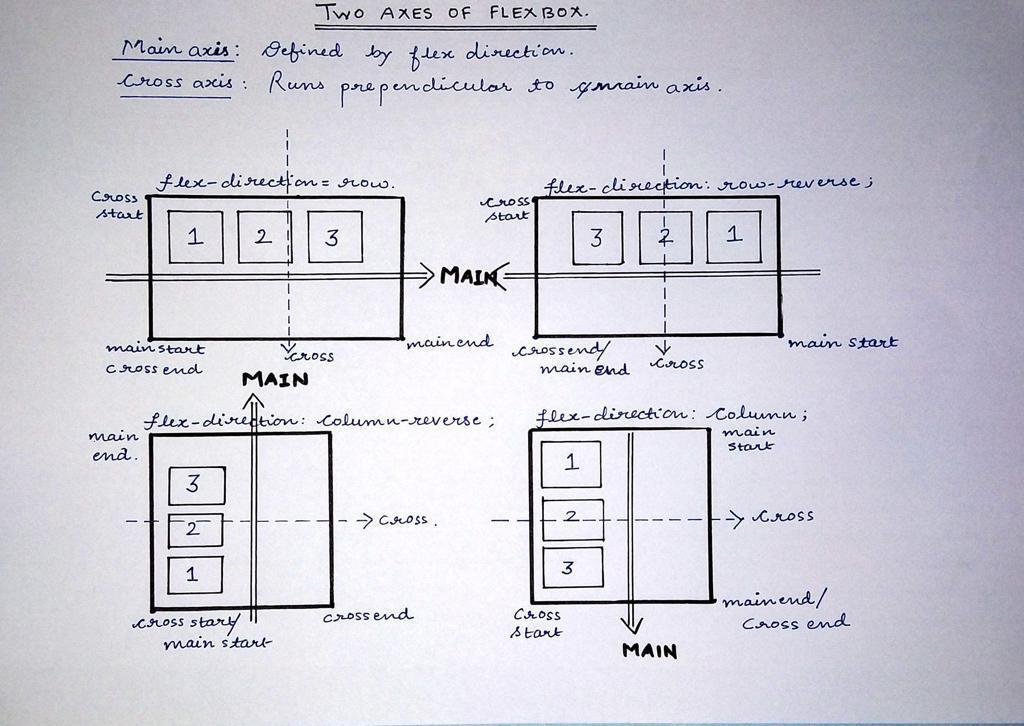 TWO AXES OF FLEXBOX.
Main axis: Defined by flex direction.
Cross axis: Runs prependicular to main axis.
flex-direction = row.
Cross start
1 2 3
main start
cross end
main end
cross
MAIN
flex-direction: row-reverse;
cross start
3 2 1
cross end/
main end
cross
main start
MAIN
flex-direction: column-reverse;
main end.
3
2
1
cross.
cross start/
main start
cross end
flex-direction: column;
main start
1
2
3
cross
Cross start
main end/
cross end
MAIN